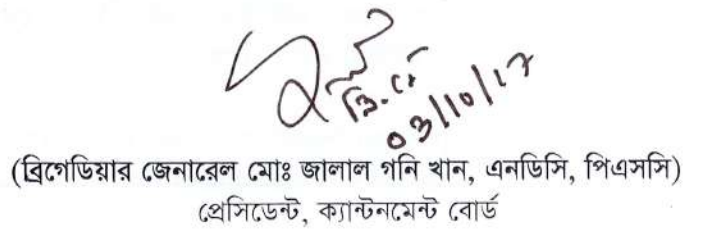 ব্রি. জে.
০৩/১০/১৭
(ব্রিগেডিয়ার জেনারেল মোঃ জালাল গনি খান, এনডিসি, পিএসসি)
প্রেসিডেন্ট, ক্যান্টনমেন্ট বোর্ড